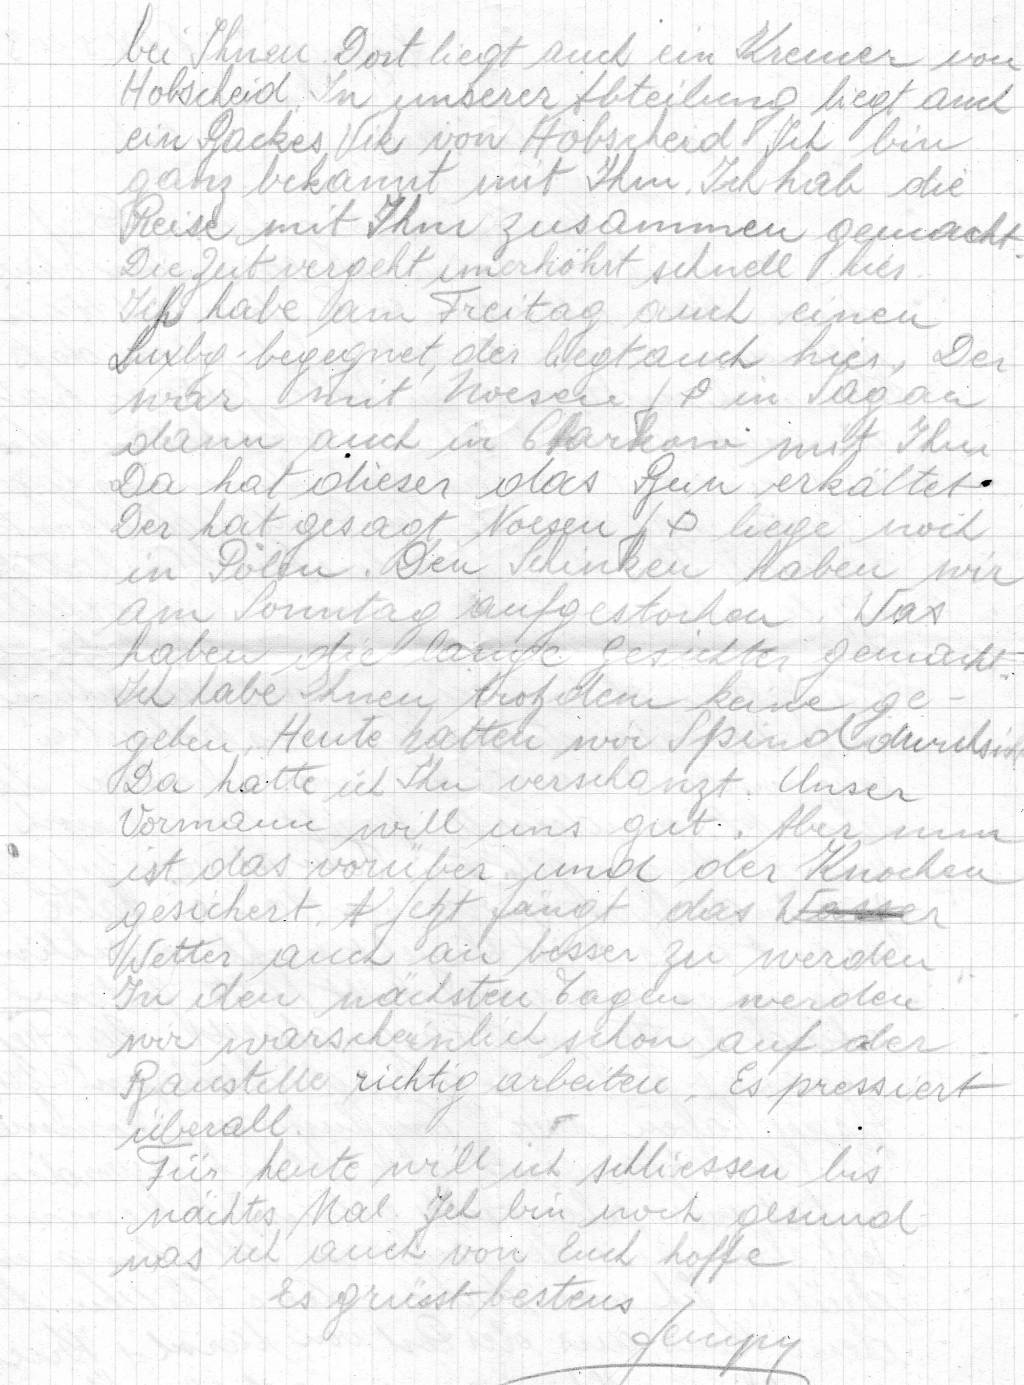 bei Ihnen. Dort liegt auch ein Kremer von
Hobscheid. In unserer Abteilung liegt auch
ein Backes Vik von Hobscheid Ich bin
ganz bekannt mit Ihm. Ich hab die
Reise mit Ihm zusammen gemacht.
Die Zeit vergeht unerhöhrt schnell hier.
Ich habe am Freitag auch einen
Luxbg. begegnet, der liegt auch hier. Der
war mit Noesen J P in Sagan
dann auch in Charkow mit Ihm
Da hat dieser das Bein erkältet.
Der hat gesagt Noesen J P liege noch
in Polen. Den Schinken haben wir
am Sonntag aufgestochen. Was
haben die lange Gesichter gemacht.
Ich habe Ihnen trotzdem keine ge-
geben. Heute hatten wir Spind durchsicht
Da hatte ich Ihn verschanzt. Unser
Vormann will uns gut. Aber nun
ist das vorüber und der Knochen
gesichert. Jetzt fängt das Wasser
Wetter auch an besser zu werden
In den nächsten Tagen werden
wir warscheinlich schon auf der
Baustelle richtig arbeiten. Es pressiert
überall.
Für heute will ich schliessen bis
nächts Mal. Ich bin noch gesund
was ich auch von Euch hoffe
Es grüsst bestens
Jempy